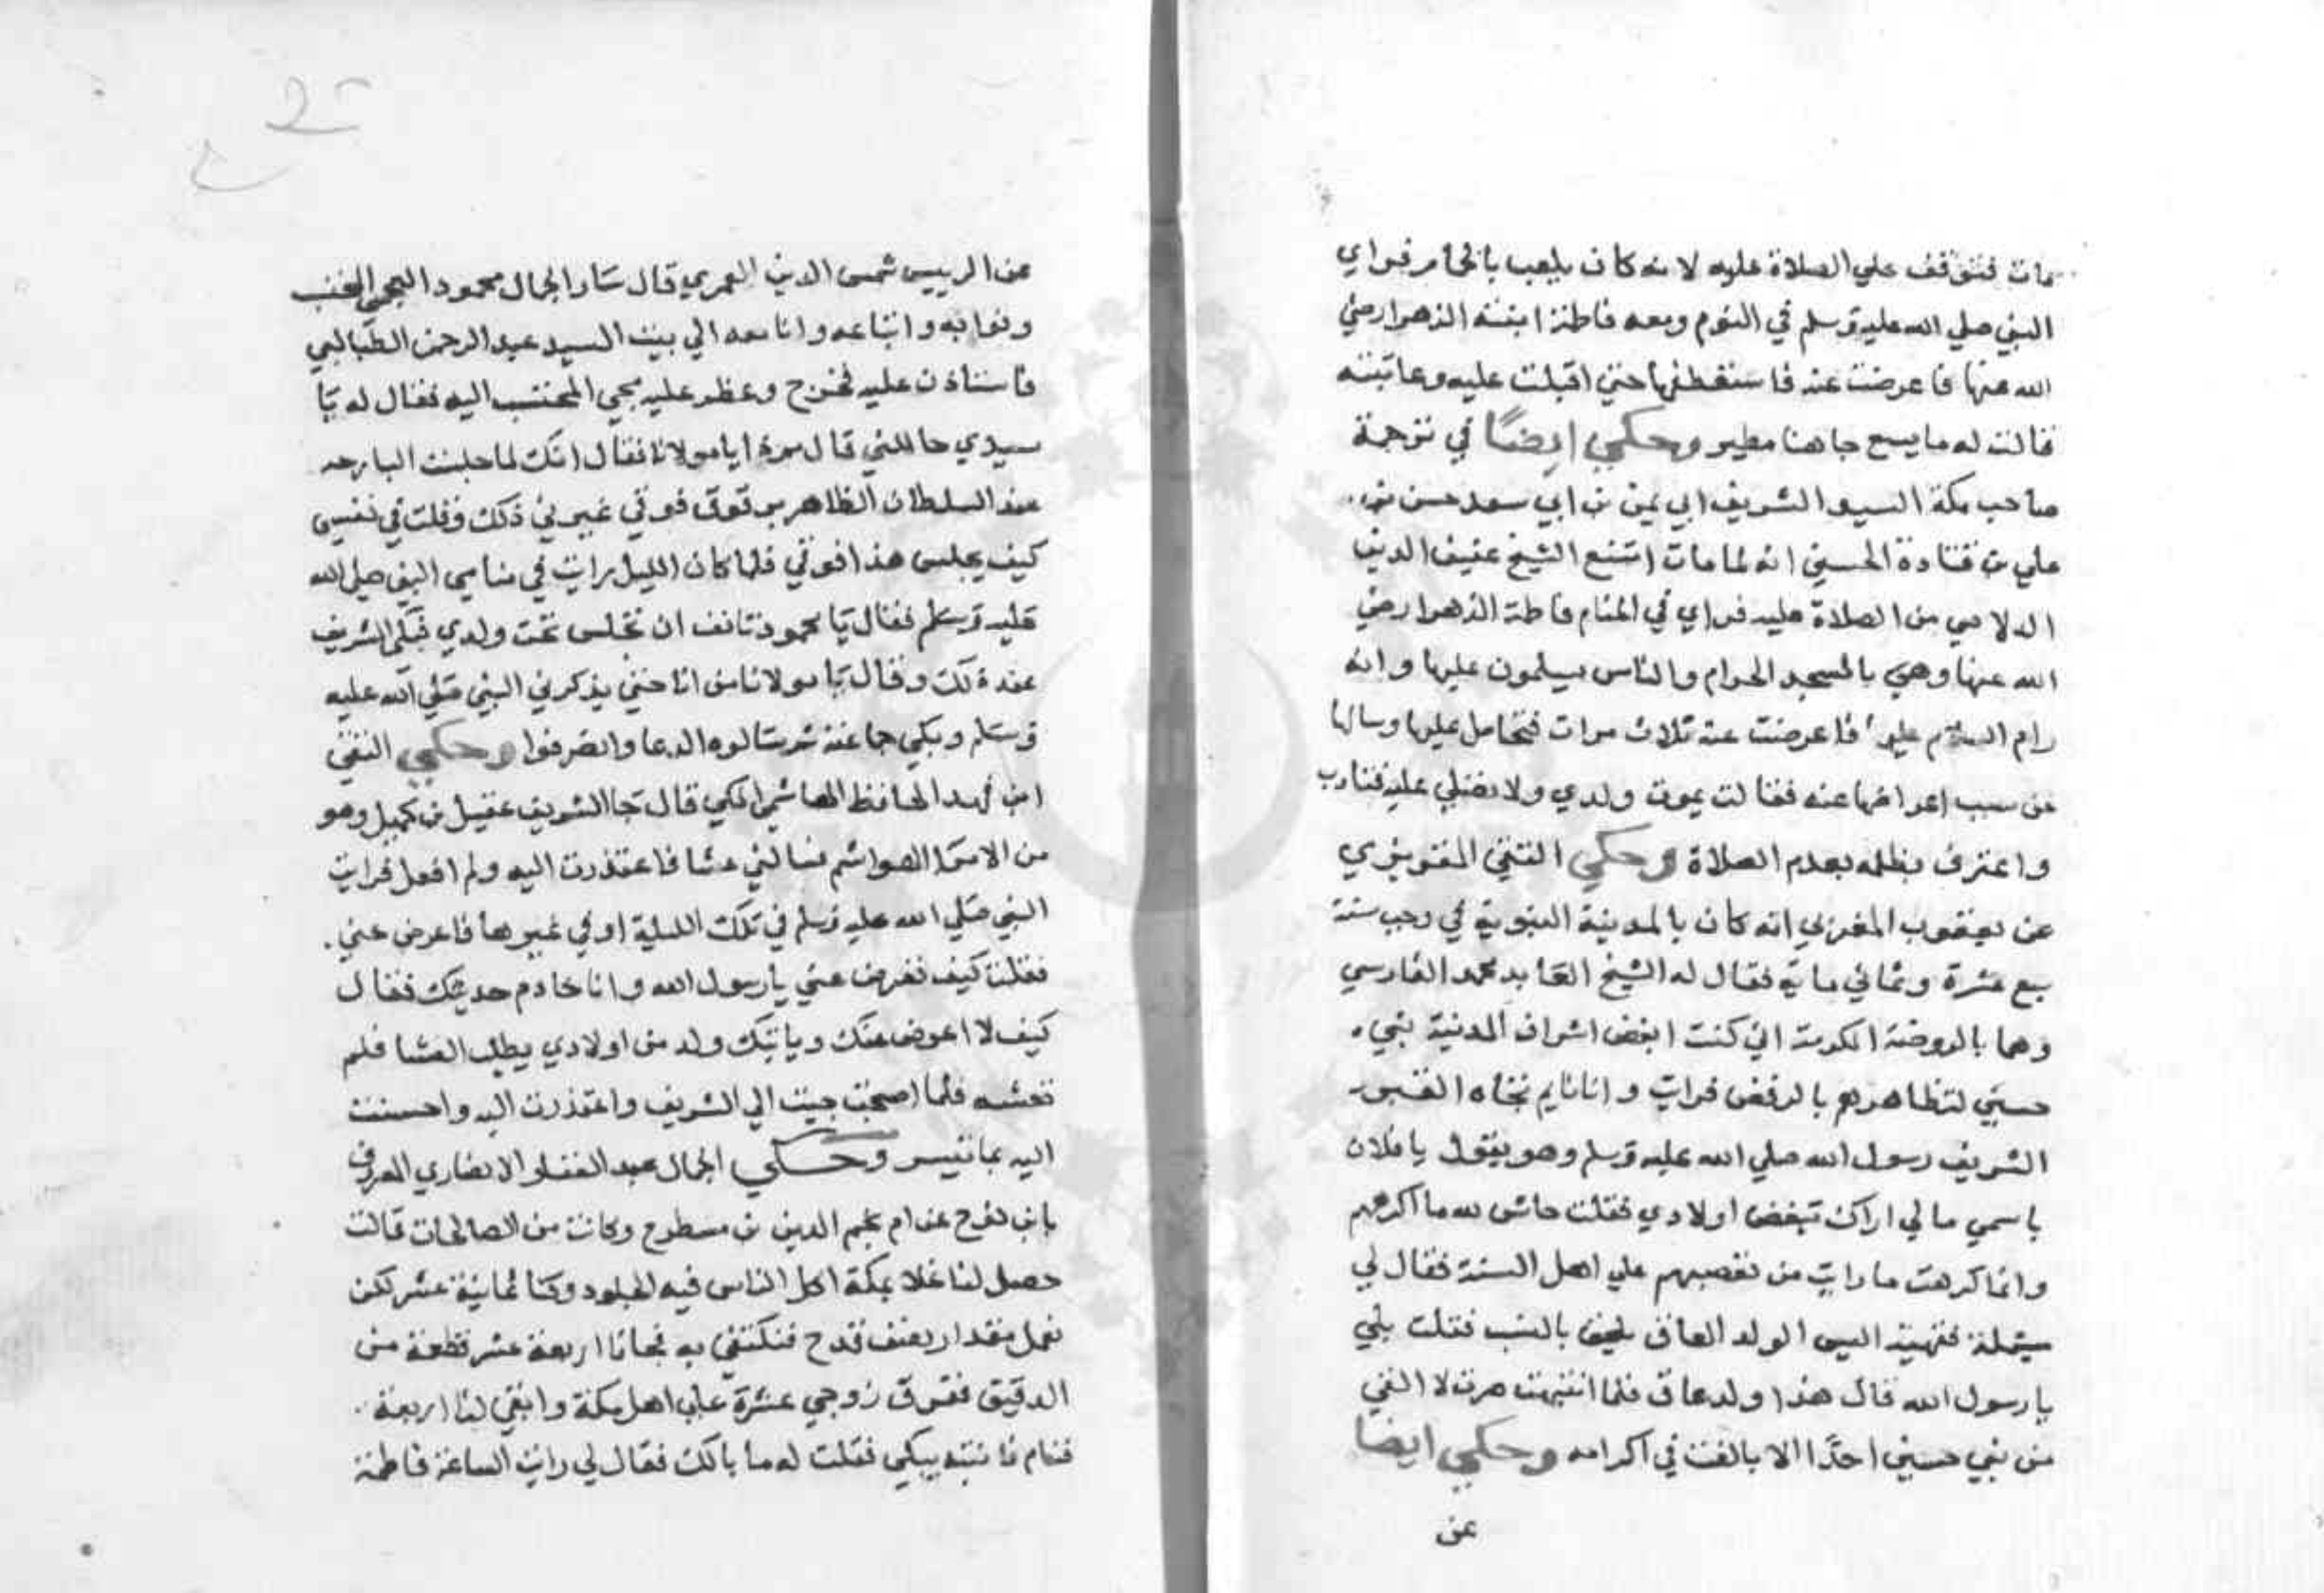 مات فتوقف علي الصلاة عليه لانه كان يلعب بالحمام فراي
النبي صلي الله عليه وسلم في النوم ومعه فاطمة ابنته الزهرا رضي
الله عنها فاعرضت عنه فاستعطفها حتي اقبلت عليه وعاتبته
قالت له ما يسع جاهنا مطير وحكي ايضًا في ترجمة
صاحب مكة السيد الشريف ابي نمي بن ابي سعد حسن بن
علي بن قتادة الحسني انه لما مات امتنع الشيخ عفيف الدين
الدلاصي من الصلاة عليه فراي في المنام فاطمة الزهرا رضي
الله عنها وهي بالمسجد الحرام والناس يسلمون عليها وانه
رام السلام عليها فاعرضت عنه ثلاث مرات فتحامل عليها وسالها
عن سبب اعراضها عنه فقالت يموت ولدي ولا تصلي عليه فتادب
واعترف بظلمه بعدم الصلاة وحكي التقي المقريزي
عن يعقوب المغربي انه كان بالمدينة النبوية في رجب سنة
سبع عشرة وثماني ماية فقال له الشيخ العابد محمد الفارسي
وهما بالروضة المكرمة اني كنت ابغض اشراف المدينة بني
حسين لتظاهرهم بالرفض فرايت وانا نايم تجاه القبر
الشريف رسول الله صلي الله عليه وسلم وهو يقول يا فلان
باسمي ما لي اراك تبغض اولادي فقلت حاش لله ما اكرههم
وانما كرهت ما رايت من تعصبهم علي اهل السنة فقال لي
مسئلة فقهية اليس الولد العاق يلحق بالنسب فقلت بلي
يا رسول الله قال هذا ولد عاق فلما انتبهت صرت لا القي
من بني حسين احدًا الا بالغت في اكرامه وحكي ايضا
عن
عن الرييس شمس الدين العمري قال سار الجمال محمود العجمي المحتسب
ونوابه واتباعه وانا معه الي بيت السيد عبد الرحمن الطباطبي
فاستاذن عليه فخرج وعظم عليه مجي المحتسب اليه فقال له يا
سيدي حاللني قال مم ذا يا مولانا فقال انك لما جلست البارحه
عند السلطان الظاهر برقوق فوقي عبر لي ذلك وقلت في نفسي
كيف يجلس هذا فوقي فلما كان الليل رايت في منامي النبي صلي الله
عليه وسلم فقال يا محمود تانف ان تجلس تحت ولدي فبكي الشريف
عند ذلك وقال يا مولانا من انا حتي يذكرني النبي صلي الله عليه
وسلم وبكي جماعته ثم سالوه الدعا وانصرفوا وحكي التقي
ابن فهد الحافظ الهاشمي المكي قال جا الشريف عقيل بن هميل وهو
من الامرا الهواشم فسالني عشا فاعتذرت اليه ولم افعل فرايت
النبي صلي الله عليه وسلم في تلك الليلة او في غيرها فاعرض عني
فقلت كيف تعرض عني يا رسول الله وانا خادم حديثك فقال
كيف لا اعرض عنك وياتيك ولد من اولادي يطلب العشا فلم
تعشه فلما اصبحت جيت الي الشريف واعتذرت اليه واحسنت
اليه بما تيسر وحكي الجمال عبد الغفار الانصاري المعروف
بابن نوح عن ام نجم الدين بن مطروح وكانت من الصالحات قالت
حصل لنا غلا بمكة اكل الناس فيه الجلود وكنا ثمانية عشر فكنا
نعمل مقدار نصف قدح فنكتفي به فجانا اربعة عشر قطعة من
الدقيق ففرق زوجي عشرة علي اهل مكة وابقي لنا اربعة
فنام فانتبه يبكي فقلت له ما بالك فقال لي رايت الساعة فاطمة